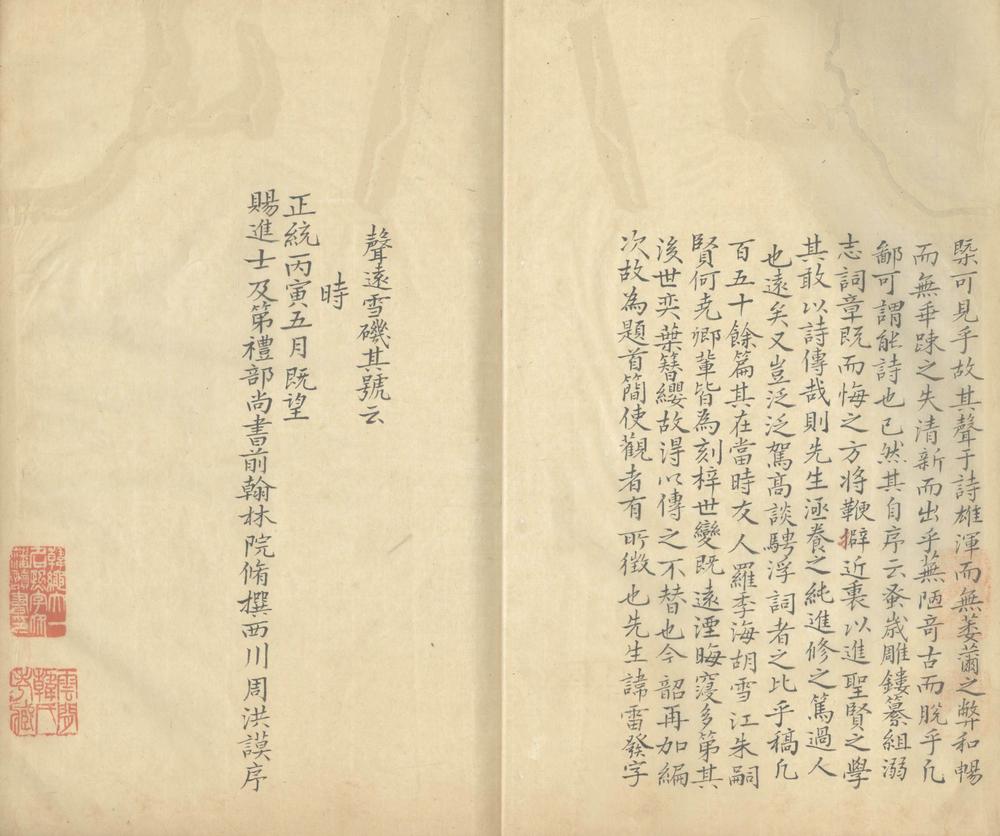 槩可見乎故其聲于詩雄渾而無萎薾之弊和暢
而無乖踈之失清新而出乎蕪陋竒古而脫乎凡
鄙可謂能詩也已然其自序云蚤歲雕鏤纂組溺
志詞章既而悔之方将鞭擗近裏以進聖賢之學
其敢以詩傳哉則先生涵養之純進修之篤過人
也遠矣又豈泛泛駕髙談騁浮詞者之比乎稿凡
百五十餘篇其在當時友人羅季海胡雪江朱嗣
賢何尭卿輩皆為刻梓世變既遠湮晦寖多第其
後世奕葉簪纓故得以傳之不替也今韶再加編
次故為題首簡使觀者有所徵也先生諱雷發字
聲遠雪磯其號云
時
正統丙寅五月既望
賜進士及第禮部尚書前翰林院脩撰西川周洪謨序
韓繩大一
名熙字价
藩讀書印
雲間
韓氏
考藏